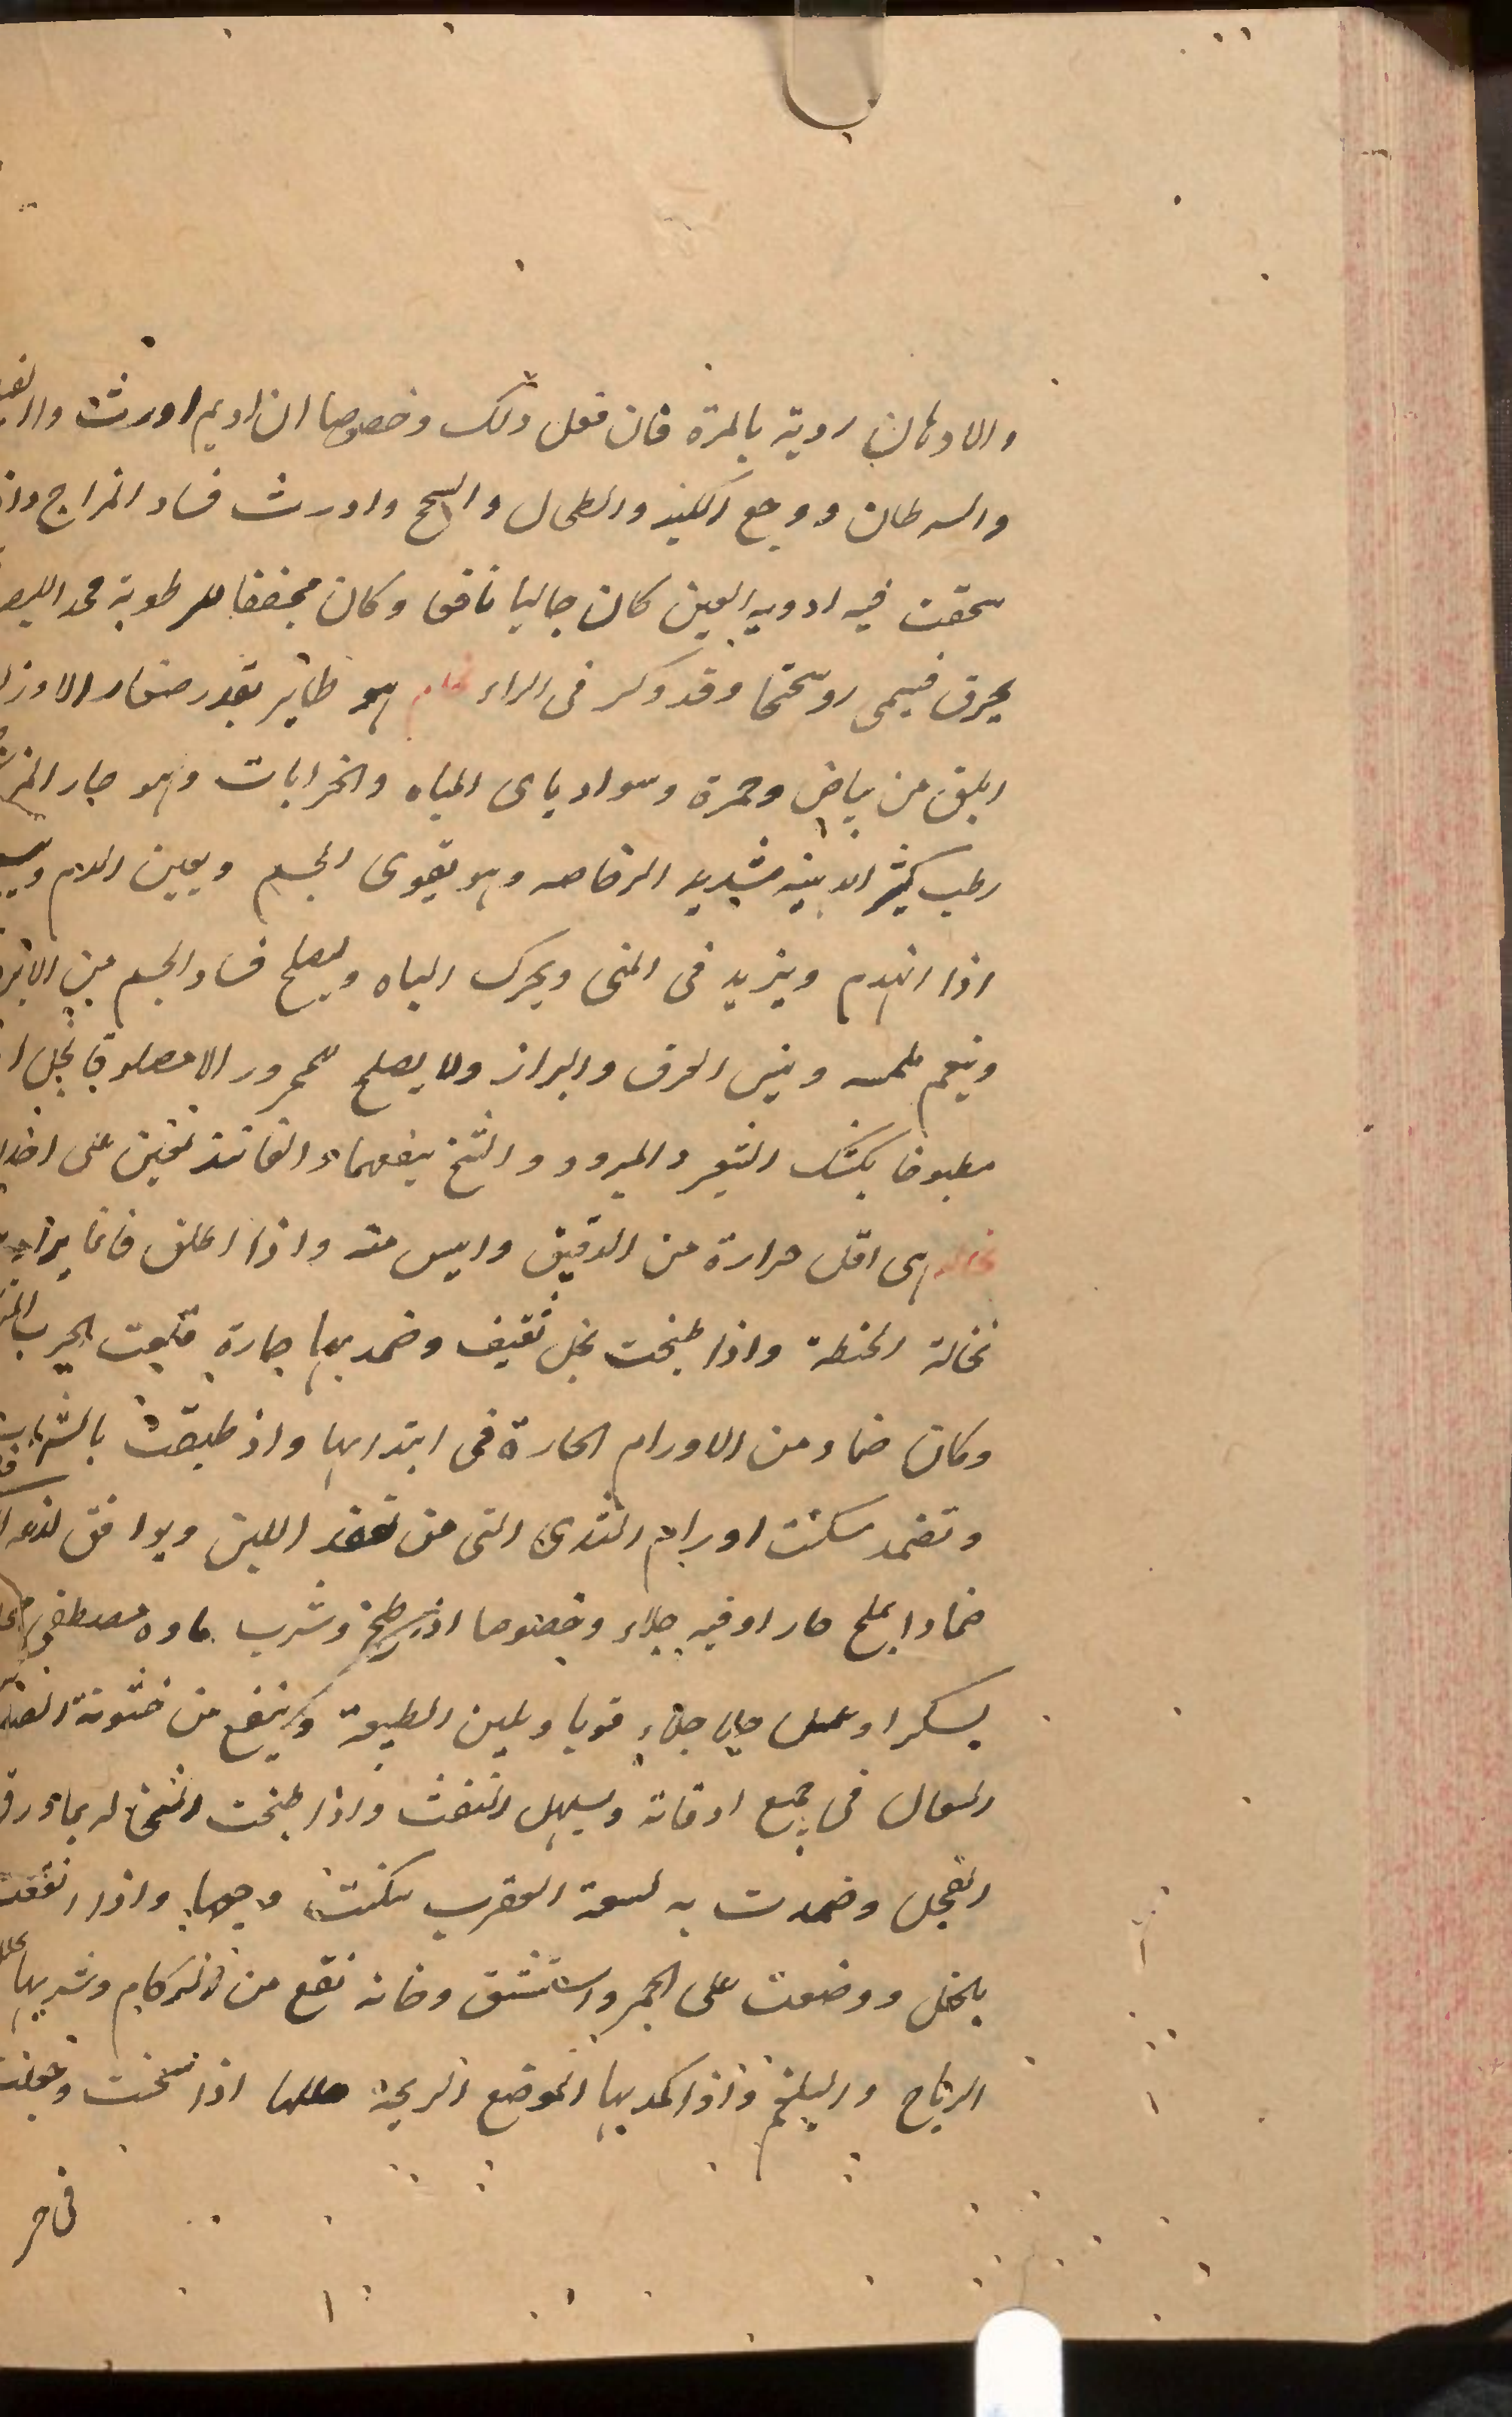 والادهان ردية بالمرة فان فعل ذلك وخصوصا ان اديم اورث
والسرطان ووجع الكبد والطحال والسحج واورث فساد المزاج واذ
سحقت فيه ادوية العين كان جاليا نافعا وكان مجففا للرطوبة محد
يحرق فيسمى روسختجا وقد ذكر فى الراء نحام هو طائر بقدر صغار الاوز
ابلق من بياض وحمرة وسواد ياى المياه والخرابات وهو حار
رطب كثير شديد وهو يقوى الجسم ويعين الدم
اذا انهدم ويزيد فى المنى ويحرك الباه ويصلح فساد الجسم من
وينعم ملمسه العرق والبراز ولا يصلح للمحرور الا مصلوقا بخل
مطبوخا بكشك الشعير والمبرود والشيخ ينفعهما على
نخاله هى اقل حرارة من الدقيق وايبس منه واذا اطلق فانما يراد
نخالة الحنطة واذا طبخت بخل ثقيف وضمد بها حارة قلعت الجرب
وكان ضماد من الاورام الحارة فى ابتدايها واذ طبخت بالشراب
وتضمد سكنت اورام الثدى التى من تعقد اللبن ويوافق
ضمادا بملح حارا وفيه جلاء وخصوصا اذ طبخ وشرب ماوه مصطفى
بسكر او عسل جلى جلاء قويا ويلين الطبيعة وينفع من خشونة
والسعال فى جميع اوقاته ويسهل النفث واذا طبخت النخاله بماء ورق
الفجل وضمدت به لسعة العقرب سكنت وجعها واذا انقعت
بالخل ووضعت على الجمر واستنشق دخانه نفع من الزكام وشربها
الرياح والبلغم واذا كمد بها الموضع الريحه اذا سخنت وجعلت
فى خر